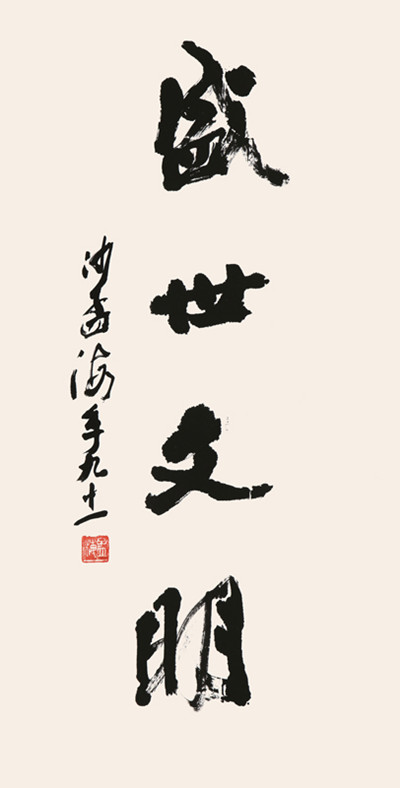 盛世文明
沙孟海年九十一
孟海